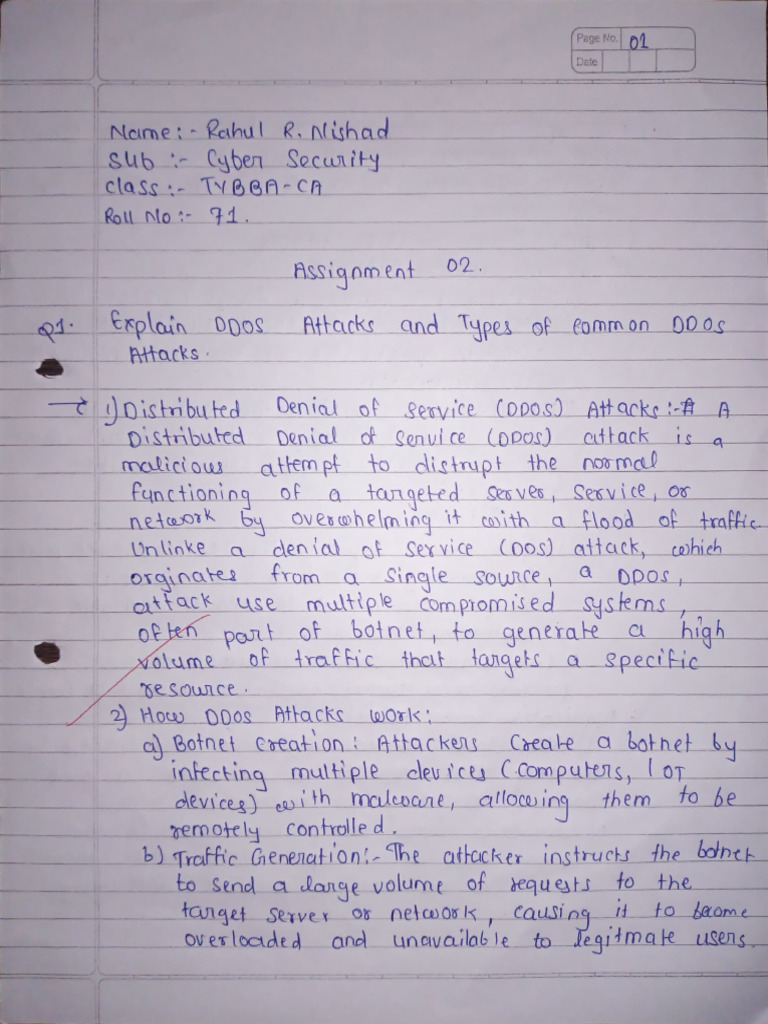 Page No. 01
Date
Name:- Rahul R. Nishad
Sub :- Cyber Security
Class :- TYBBA-CA
Roll No:- 71.
Assignment 02.
Q1. Explain DDOS Attacks and Types of common DDOS
Attacks.
→ 1) Distributed Denial of Service (DDOS) Attacks:- A
Distributed Denial of Service (DDOS) attack is a
malicious attempt to distrupt the normal
functioning of a targeted server, service, or
network by overwhelming it with a flood of traffic.
Unlinke a denial of service (DOS) attack, which
orginates from a single source, a DDOS,
attack use multiple compromised systems,
often part of botnet, to generate a high
volume of traffic that targets a specific
resource.
2) How DDOS Attacks work:
a) Botnet Creation: Attackers create a botnet by
infecting multiple devices (computers, IOT
devices) with malware, allowing them to be
remotely controlled.
b) Traffic Generation:- The attacker instructs the botnet
to send a large volume of requests to the
target server or network, causing it to become
overloaded and unavailable to legitmate users.